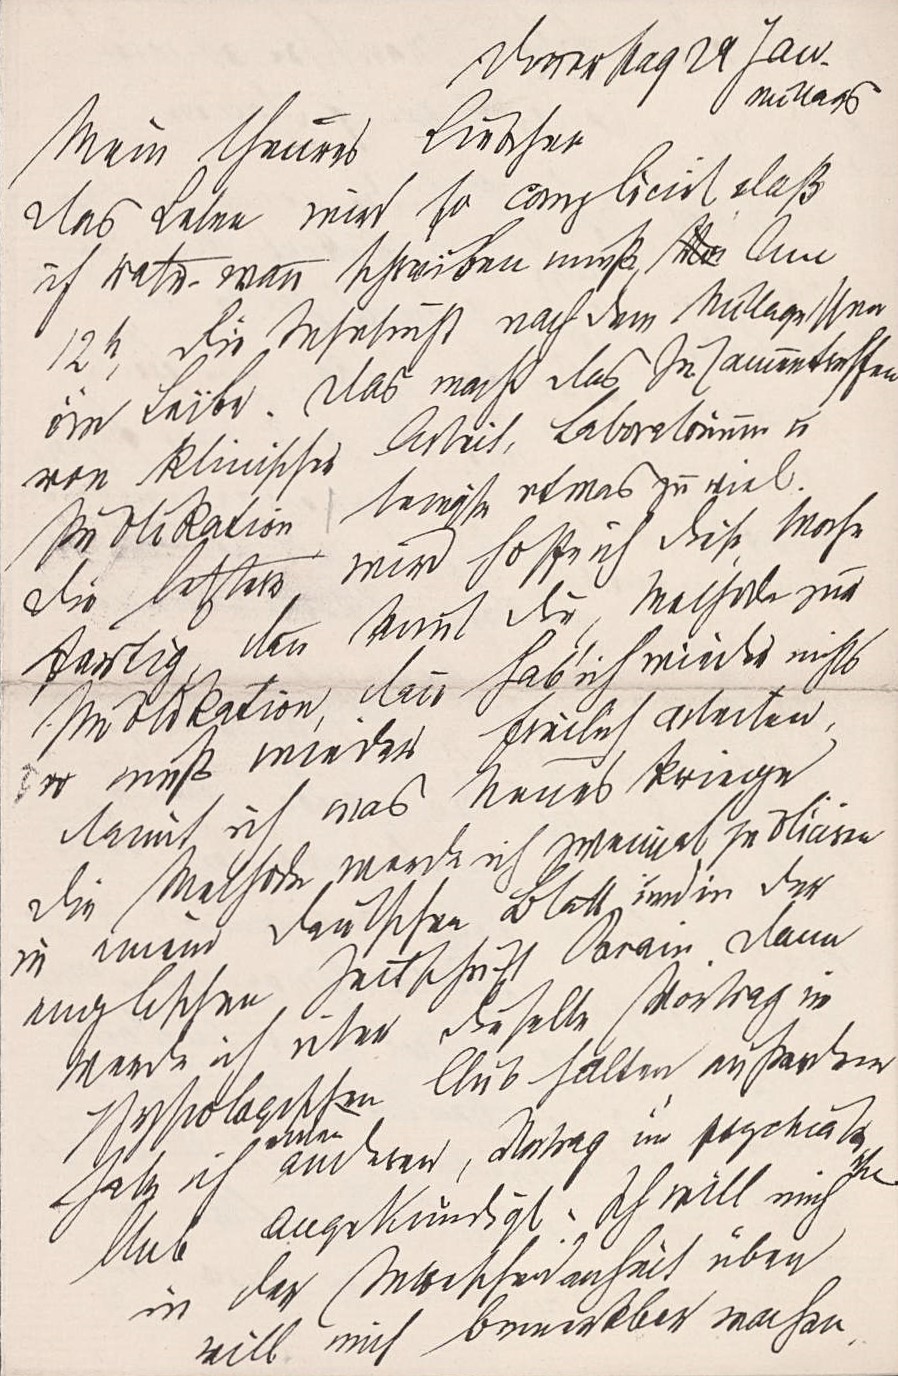 Donnerstag 24 Jan.
mittags
Mein theures Liebchen
das Leben wird so complicirt, daß
ich schreiben muß, um
12h, die Sehnsucht nach dem Mittagessen
im Leibe. Das macht das Zusammentreffen
von klinischer Arbeit, Laboratorium u
Publikation, etwas zu viel.
Die letztere wird hoff ich diese Woche
fertig, die Methode zur
Publikation, dann hab' ich wieder nichts
er muß wieder freilich arbeiten,
damit ich was Neues kriege
Die Methode werde ich zweimal publiciren
in einem deutschen Blatt und in der
englischen Zeitschrift Brain, dann
werde ich über dieselbe Vortrag im
Physiologischen Club halten außerdem
hab ich einen anderen Vortrag im psychiatrischen
Club angekündigt. Ich will mich
in der üben
will mich bemerkbar machen.